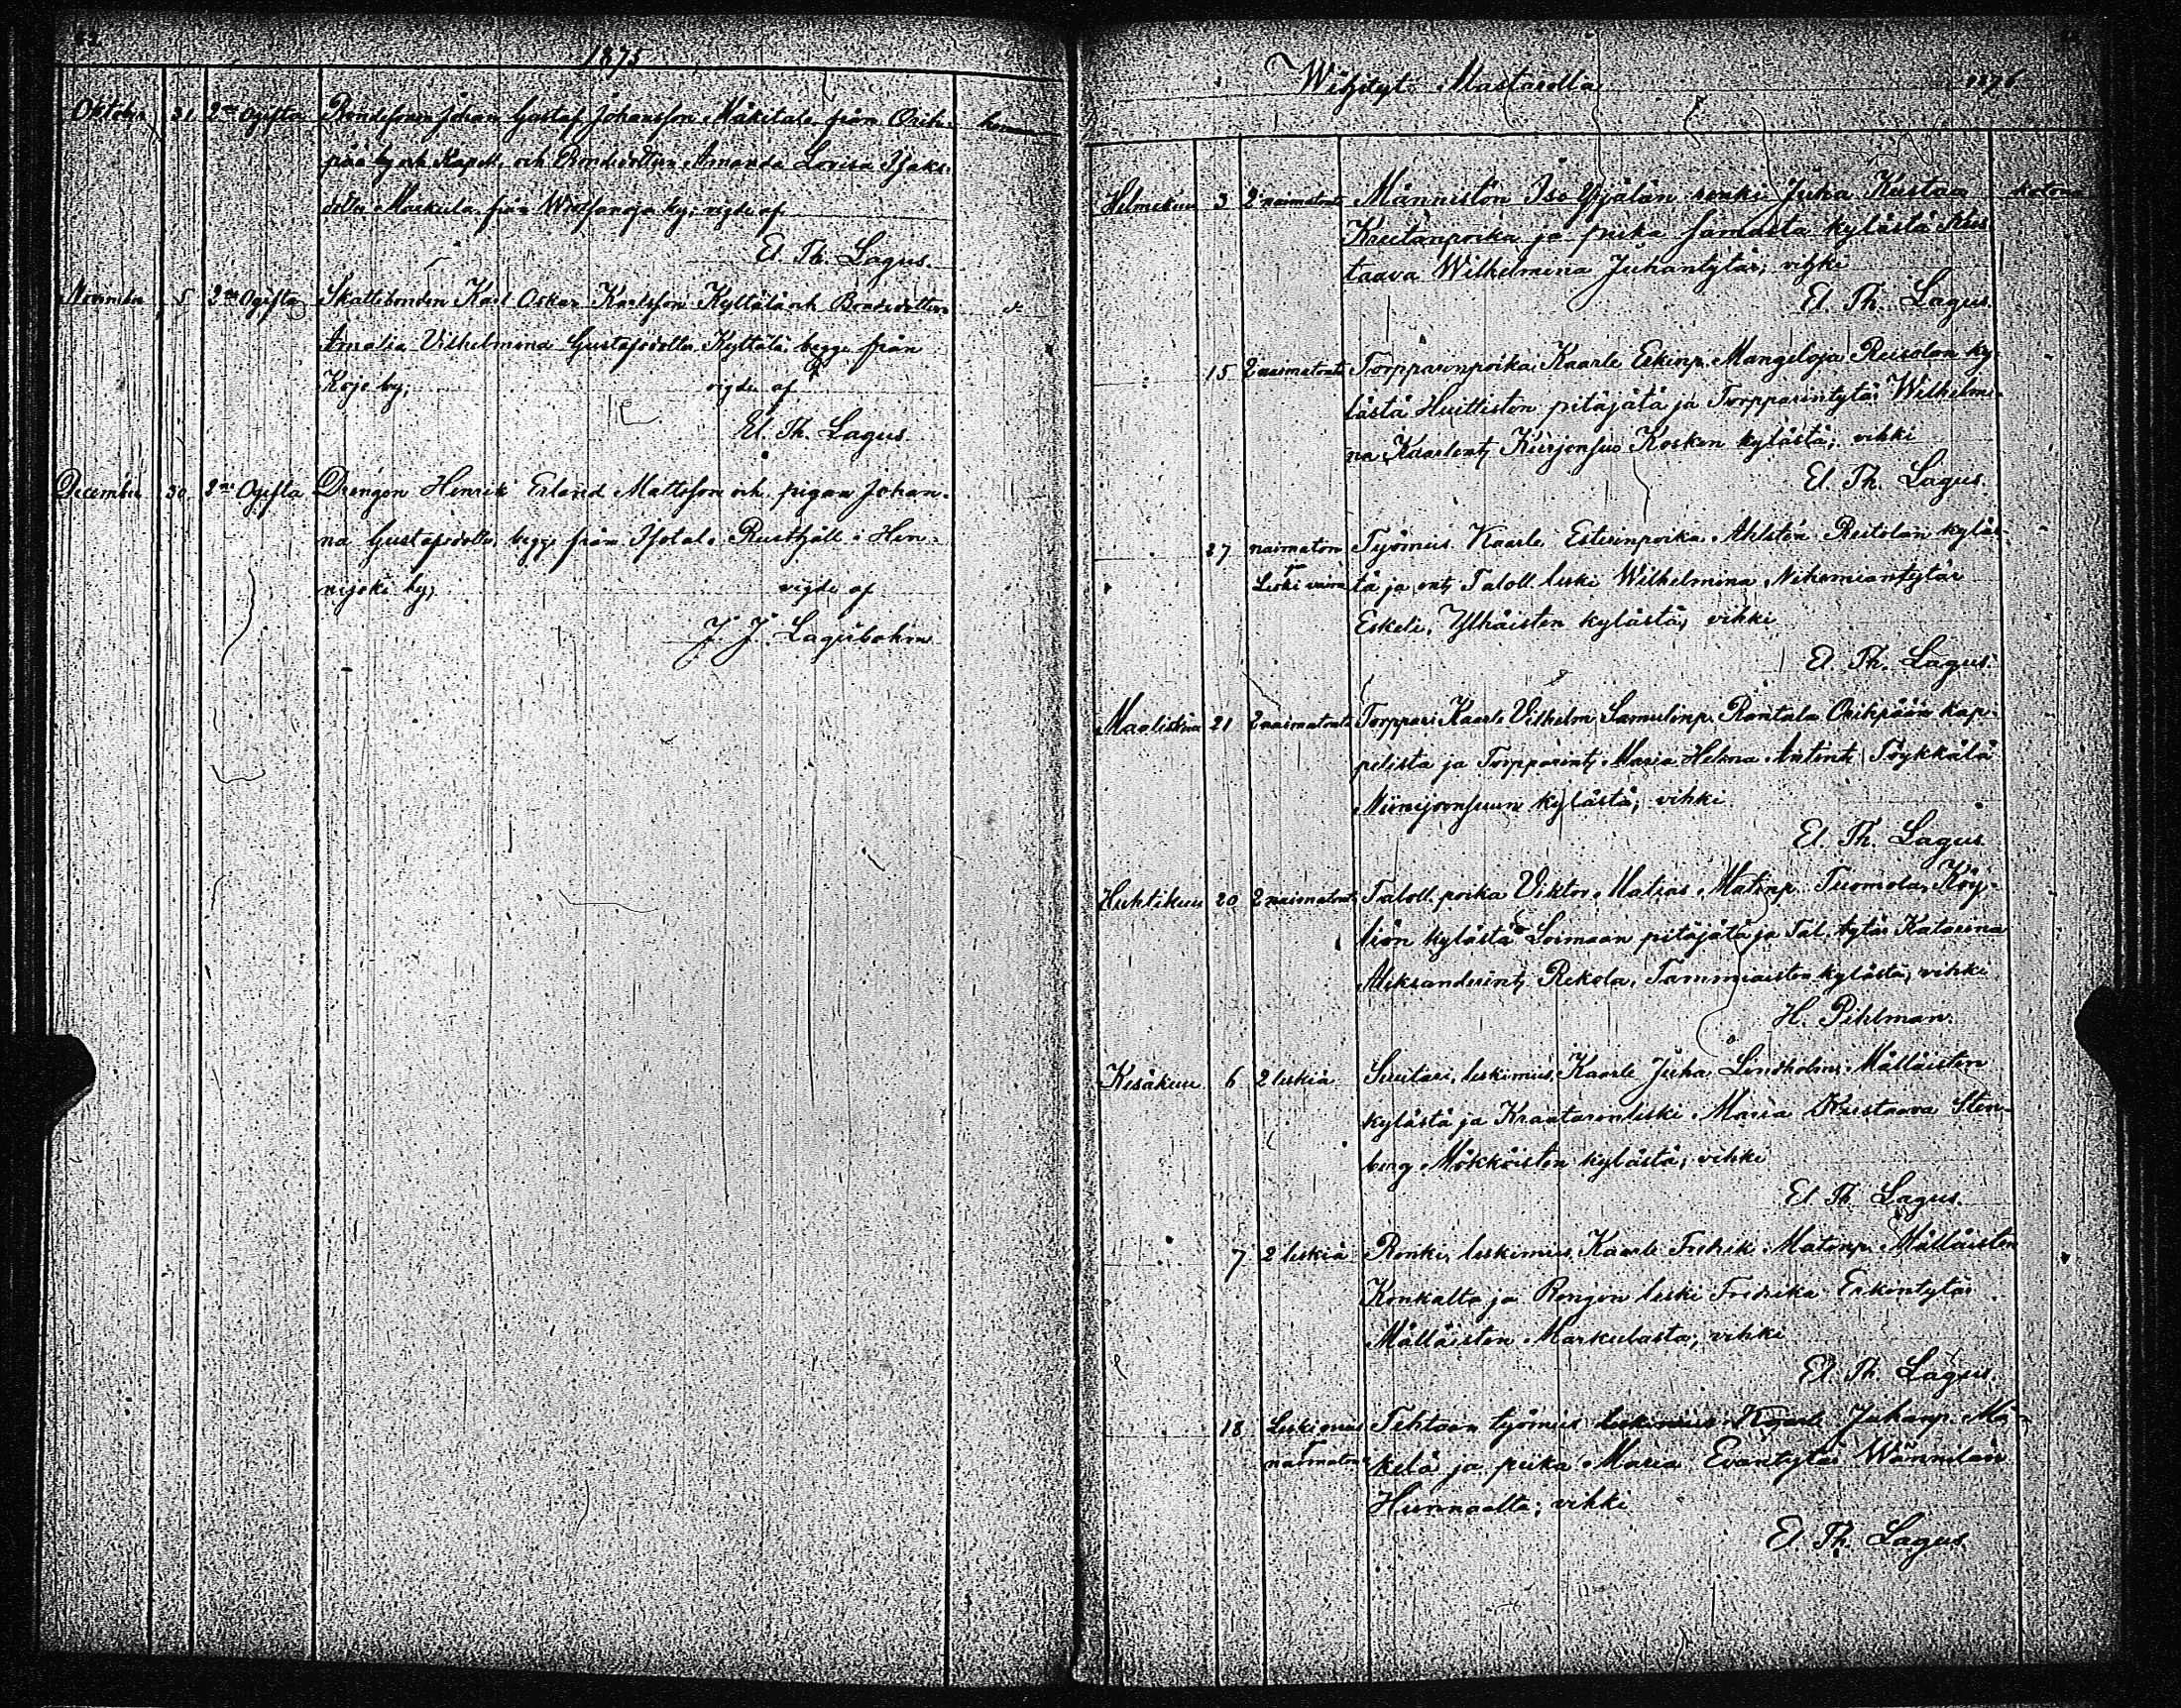 1875
Oktober 31 2ne Ogifta Bondesonen Johan Gustaf Johansson Mäkitalo från Orih-
pää by och Kapell, och Bondedottren Amanda Lovisa Isaks-
dotter Markula från Wirtsanoja by; vigde af
El. Th. Lagus.
November 5 2ne Ogifta Skattebonden Karl Oskar Karlsson Kyttälä och Bondedottren
Amalia Vilhelmina Gustafsdotter Kyttälä, begge från
Kojo by; vigde af
El. Th. Lagus
December 30 2ne Ogifta Drengen Henrik Erland Mattsson och pigan Johan-
na Gustafsdotter, begge från Isotalo Rusthåll i Hen-
nijoki by; vigde af
J. J. Lagerbohm
Wihityt 1876
Helmikuu 3 2 naimatonta Männistön Iso Yrjälän renki Juha Kustaa
Kreetanpoika ja piika samasta kylästä Kus-
taava Wilhelmina Juhantytär; vihki
El. Th. Lagus.
15 2 naimatonta Torpparinpoika Kaarle Erkinp. Mangeloja Reisolan ky-
lästä Huittisten pitäjätä ja Torpparintytär Wilhelmi-
na Kaarlent. Kurjensuo Kosken kylästä; vihki
El. Th. Lagus.
27 naimaton Työmies Kaarle Esterinpoika Ahlstén Reitolan kyläs-
Leski vaimo tä ja ent. Taloll. leski Wilhelmina Nehemiantytär
Eskeli, Ylhäisten kylästä; vihki
El. Th. Lagus.
Maaliskuu 21 2 naimatonta Torppari Kaarle Vilhelm Samulinp. Rantala Orihpään kap-
pelista ja Torpparint. Maria Helena Antint. Töykkälä
Niinijoensuun kylästä; vihki
El. Th. Lagus
Huhtikuu 20 2 naimatonta Taloll. poika Viktor Matias Matinp. Tuomola, Köy-
liön kylästä Loimaan pitäjätä ja Tal. tytär Katarina
Aleksanderint. Rekola, Tammiaisten kylästä, vihki
H. Pihlman.
Kesäkuu 6 2 leskiä Suutari, leskimies, Kaarle Juha Lindholm, Mälläisten
kylästä ja Kraatarinleski Maria Kustaava Sten-
berg Mökköisten kylästä; vihki
El. Th. Lagus.
7 2 leskiä Renki, leskimies, Kaarle Fredrik Matinp. Mälläisten
Konkalta ja Rengin leski Fredrika Erkintytär
Mälläisten Markulasta; vihki
El. Th. Lagus.
18 Leskimies Tehtaan työmies leskimies Kaarle Juhanp. Mä-
naimaton kelä ja piika Maria Evantytär Wännilän
Hunnaalta; vihki
El. Th. Lagus.